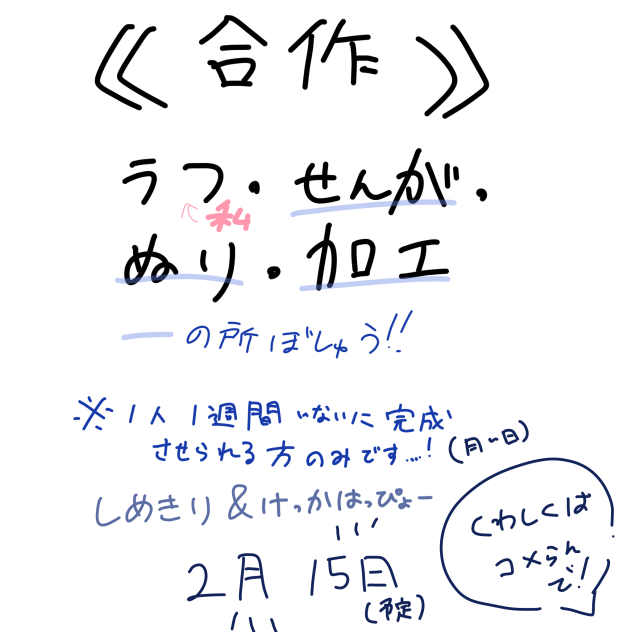 《合作》
ラフ・せんが・
↖私
ぬり・加工
―の所ぼしゅう!!
※1人1週間いないに完成
させられる方のみです…!
(月~日)
しめきり&けっかはっぴょー
2月15日
(予定)
くわしくは
コメらん
で!!